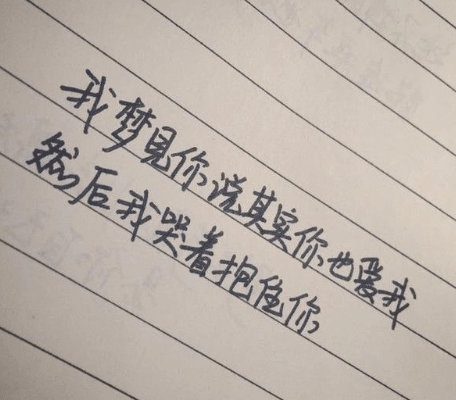 我梦见你说其实你也爱我
然后我哭着抱住你